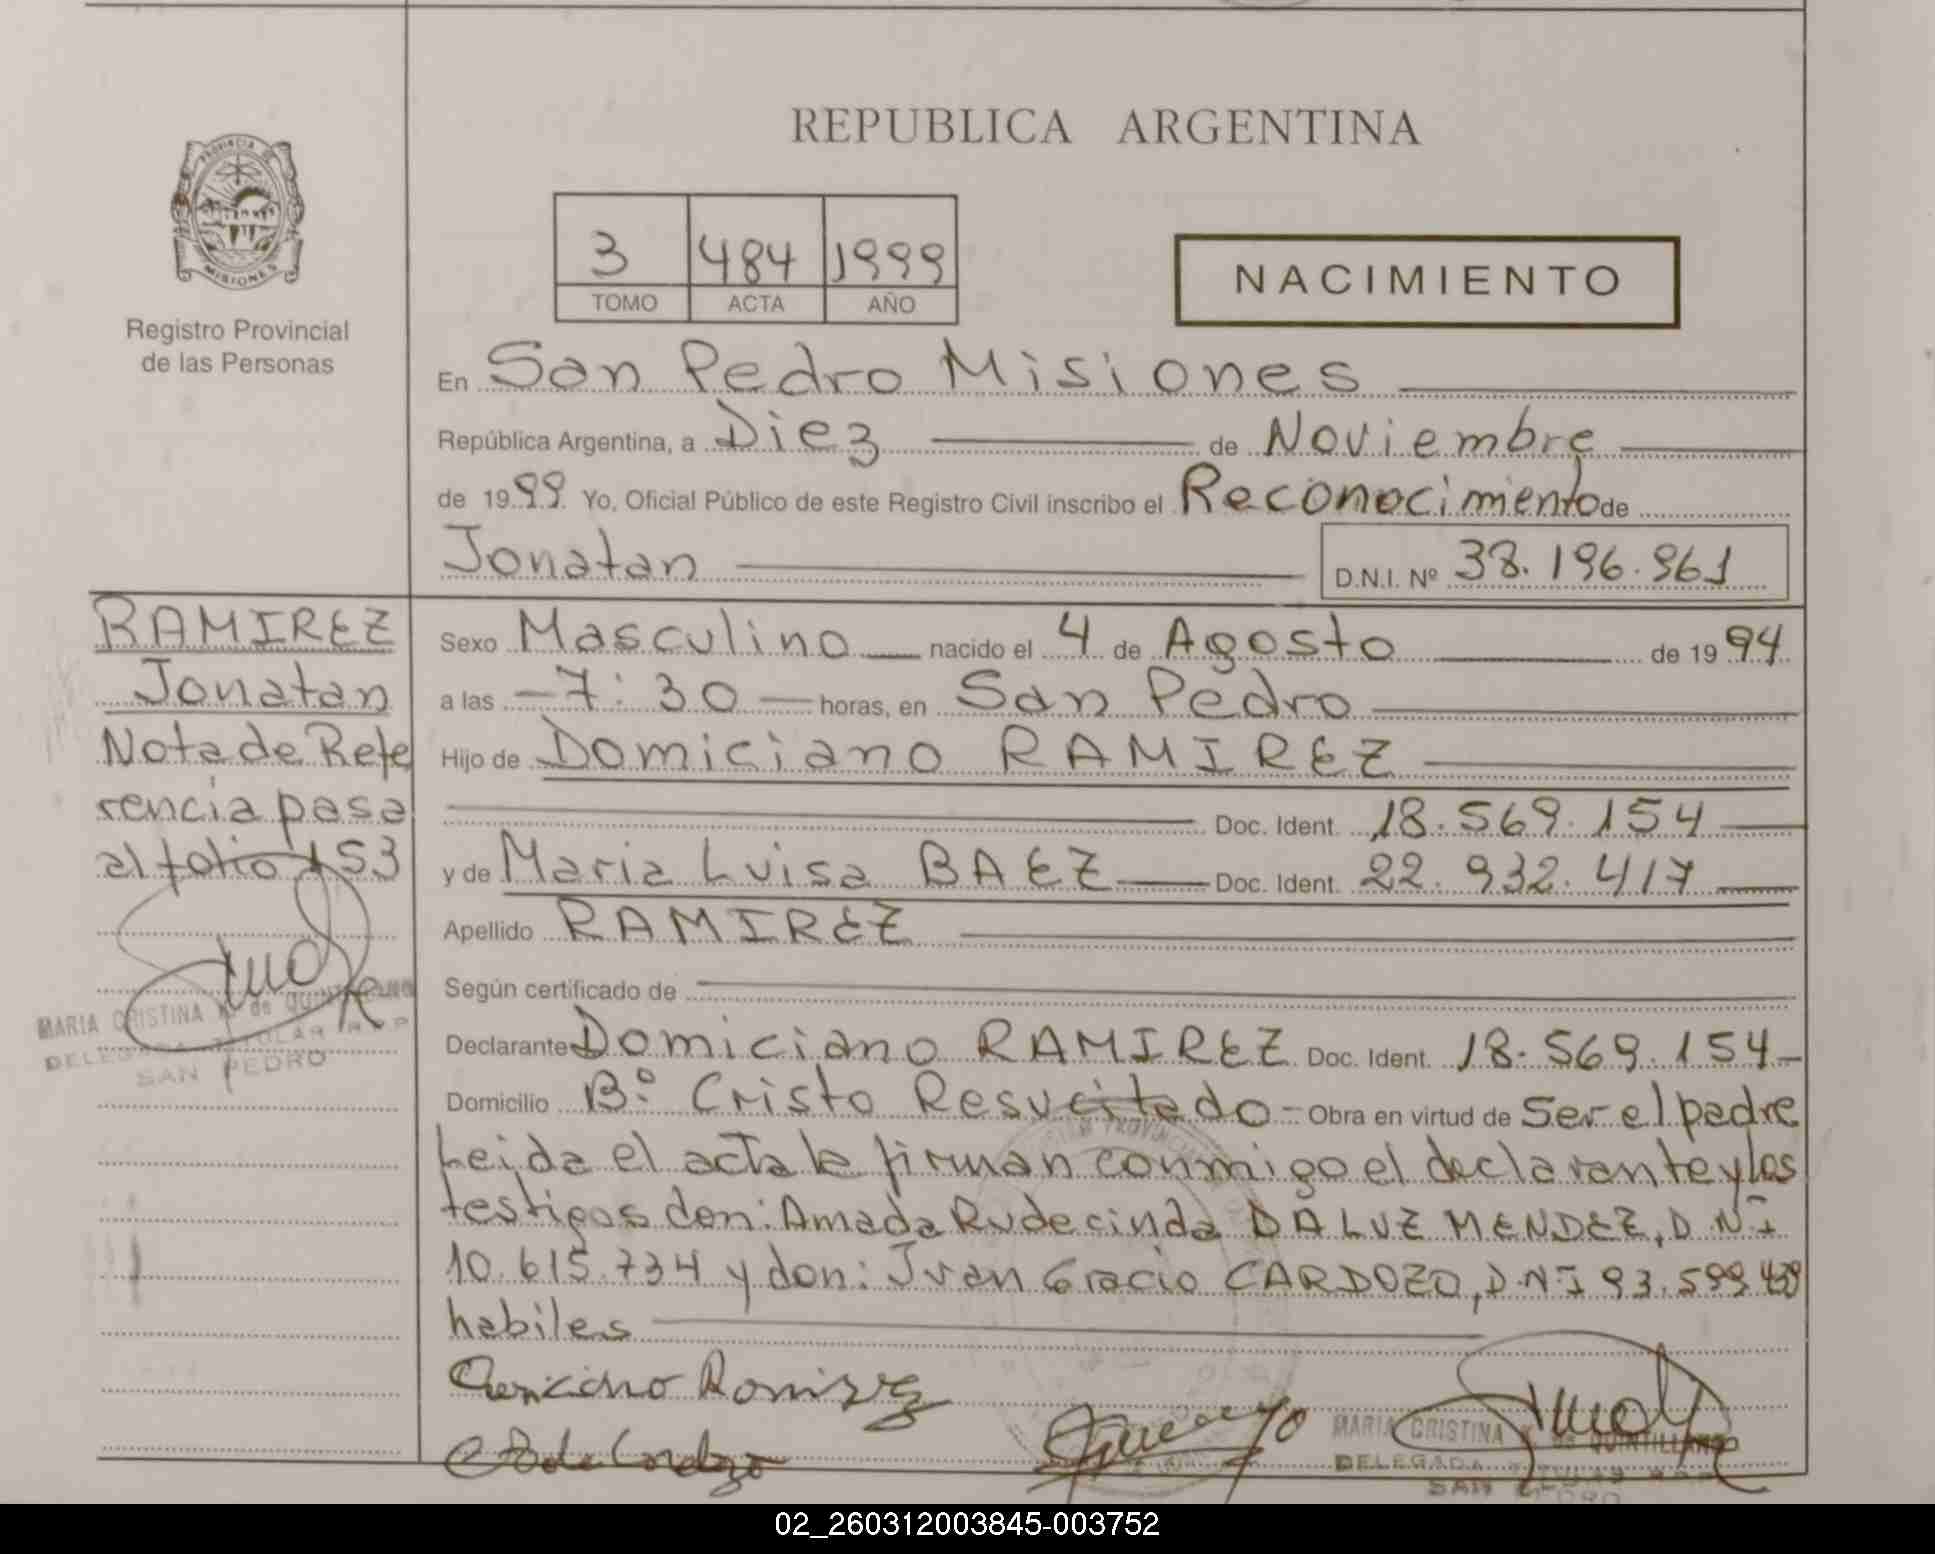 REPUBLICA ARGENTINA
PROVINCIA DE
MISIONES
Registro Provincial
de las Personas
3 484 1999
TOMO ACTA AÑO
NACIMIENTO
En San Pedro Misiones
República Argentina, a Diez de Noviembre
de 1999 Yo, Oficial Público de este Registro Civil inscribo el Reconocimiento de
Jonatan D.N.I. Nº 38.196.961
RAMIREZ
Jonatan
Nota de Refe
rencia pasa
al folio 153
MARIA CRISTINA de QUINTILLANO
DELEGADA TITULAR R.P.P
SAN PEDRO
Sexo Masculino nacido el 4 de Agosto de 1994
a las 7:30 horas, en San Pedro
Hijo de Domiciano RAMIREZ
Doc. Ident. 18.569.154
y de Maria Luisa BAEZ Doc. Ident. 22.932.417
Apellido RAMIREZ
Según certificado de
Declarante Domiciano RAMIREZ Doc. Ident. 18.569.154
Domicilio Bº Cristo Resucitado - Obra en virtud de Ser el padre
Leida el acta la firman conmigo el declarante y los
testigos don: Amada Rudecinda DA LUZ MENDEZ, D.N.I
10.615.734 y don: Juan Gracio CARDOZO, D.N.I 93.599
habiles
MARIA CRISTINA de QUINTILLANO
DELEGADA TITULAR
SAN PEDRO
02_260312003845-003752